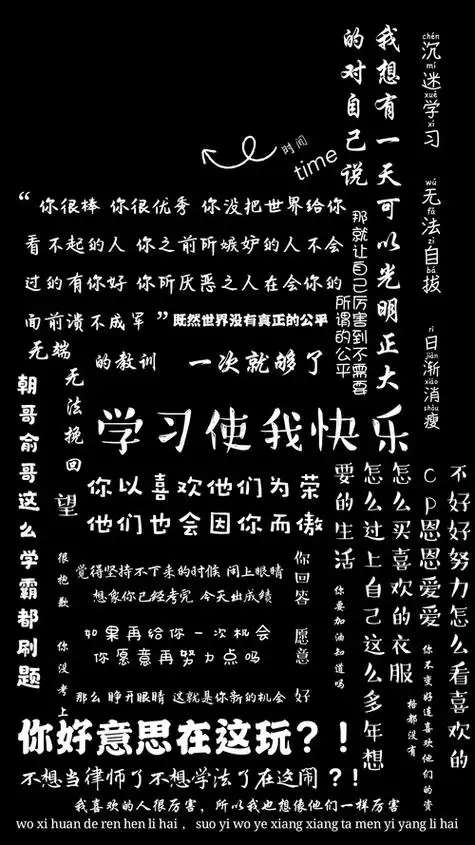 chén mí xué xí
沉迷学习
wú fǎ zì bá
无法自拔
rì jiàn xiāo shòu
日渐消瘦
我想有一天可以光明正大
的对自己说
时间
time
“ 你很棒 你很优秀 你没把世界给你
看不起的人 你之前所嫉妒的人不会
过的有你好 你所厌恶之人在会你的
面前溃不成军 ”
既然世界没有真正的公平
那就让自己厉害到不需要
所谓的公平
无端
的教训 一次就够了
无法挽回
望
朝哥俞哥这么学霸都刷题
学习使我快乐
你以喜欢他们为荣
他们也会因你而傲
不好好努力怎么看喜欢的
cp恩恩爱爱
怎么买喜欢的衣服
怎么过上自己这么多年想
要的生活
你要加油知道吗
你不变好连喜欢他们的资
格都没有
很抱歉 你没考上
觉得坚持不下来的时候 闭上眼睛
想象你已经考完 今天出成绩
如果再给你一次机会
你愿意再努力点吗
你回答 愿意
那么 睁开眼睛 这就是你新的机会 好
你好意思在这玩？！
不想当律师了不想学法了在这闹？！
我喜欢的人很厉害，所以我也想像他们一样厉害
wo xi huan de ren hen li hai ，suo yi wo ye xiang xiang ta men yi yang li hai